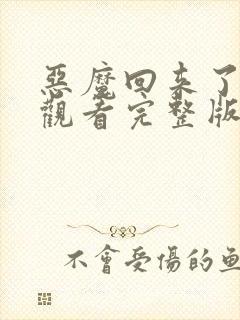 惡魔回来了
觀看完整版
不會受傷的魚